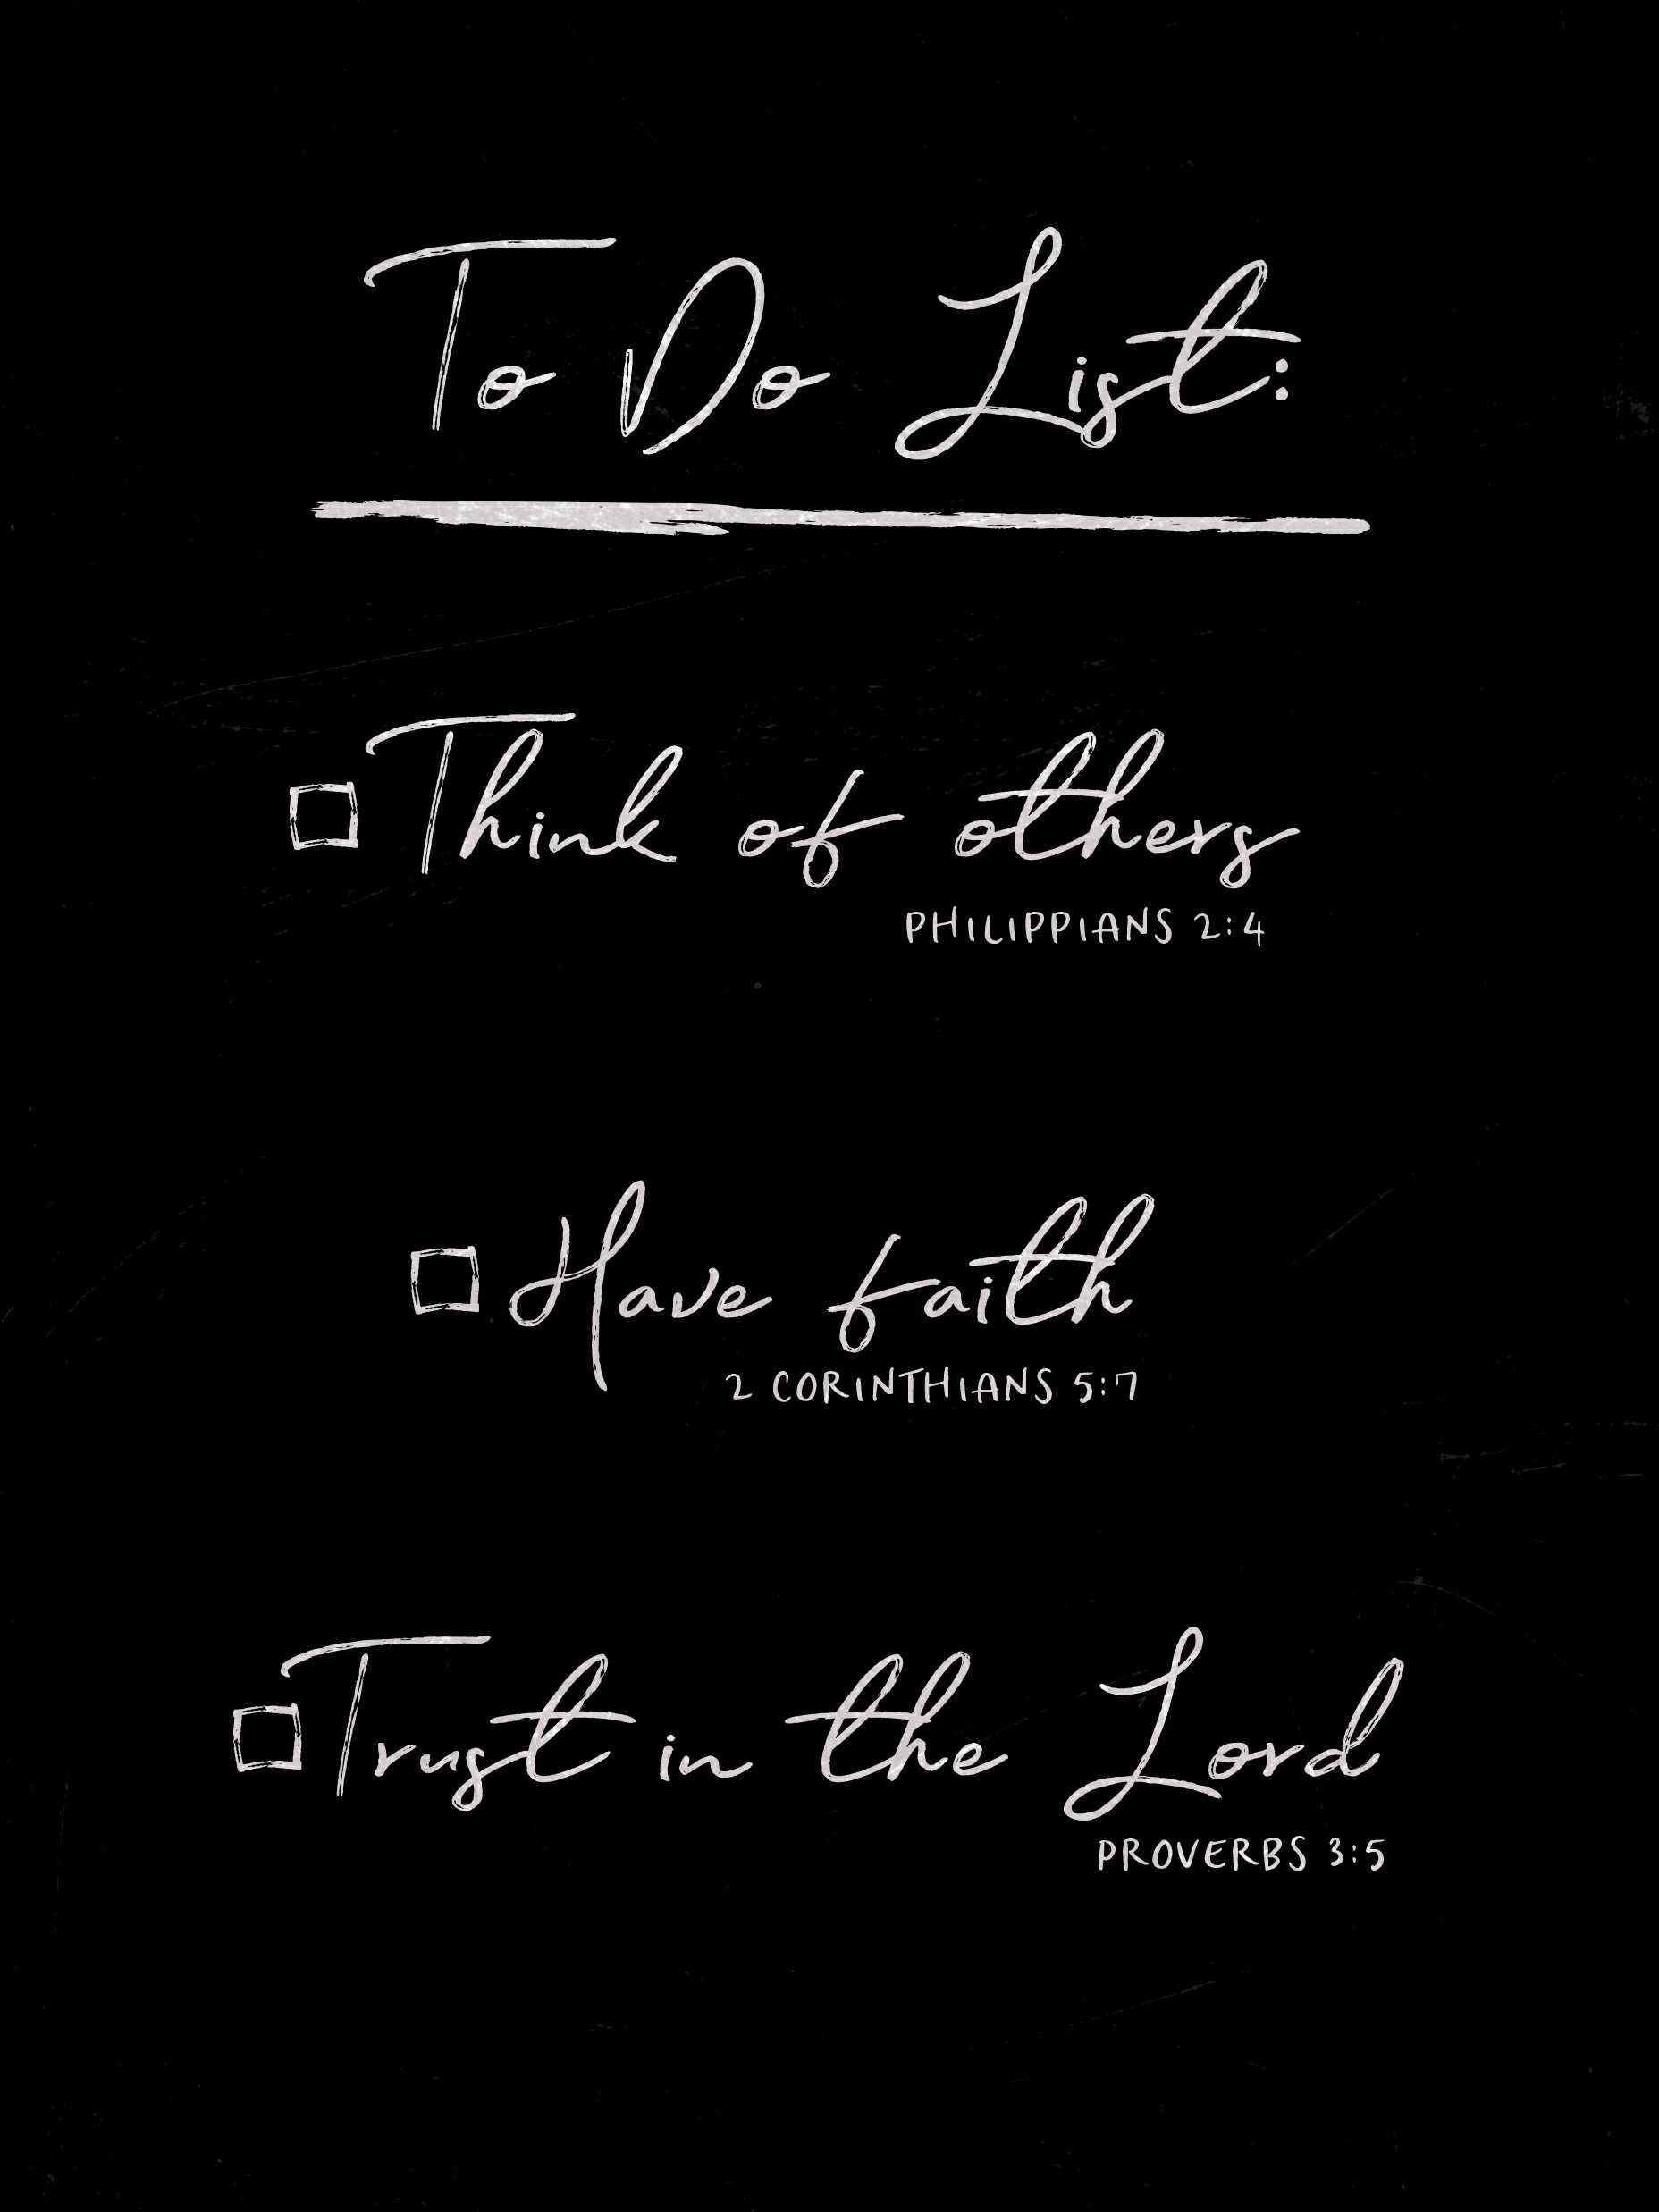 To Do List:
Think of others
PHILIPPIANS 2:4
Have faith
2 CORINTHIANS 5:7
Trust in the Lord
PROVERBS 3:5